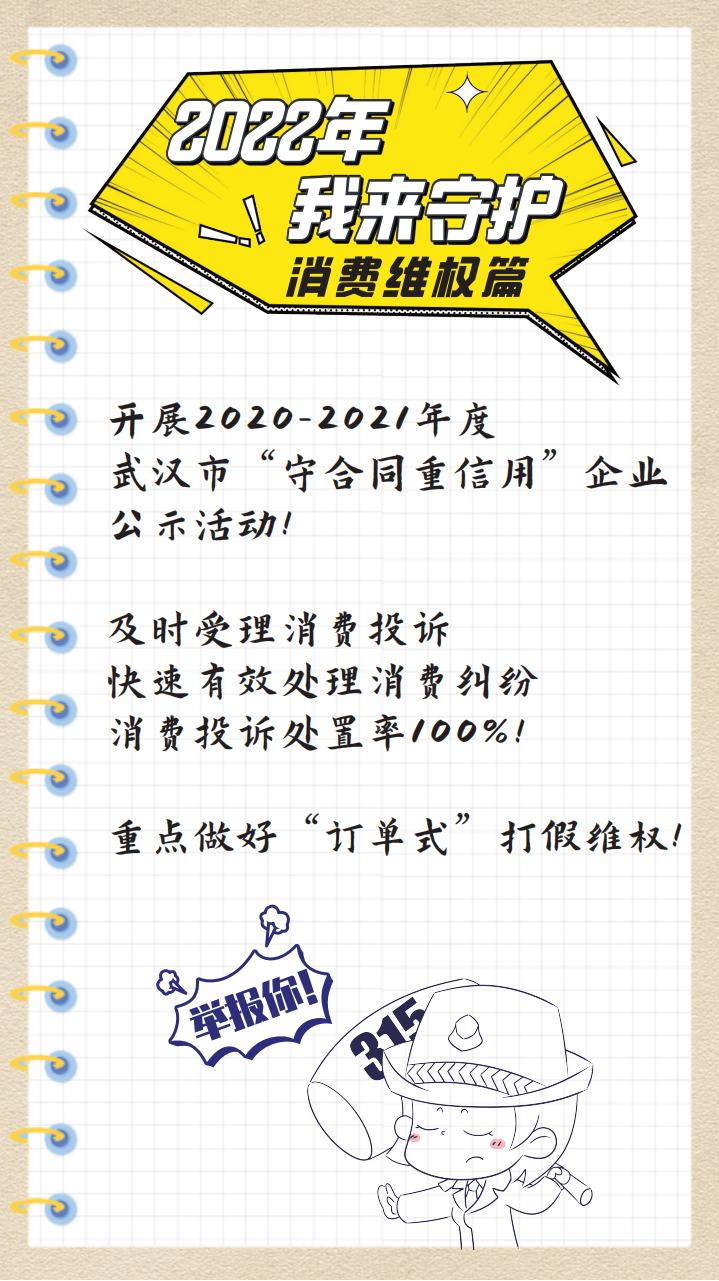 2022年
我来守护
消费维权篇
开展2020-2021年度
武汉市“守合同重信用”企业
公示活动!
及时受理消费投诉
快速有效处理消费纠纷
消费投诉处置率100%!
重点做好“订单式”打假维权!
举报你!
315